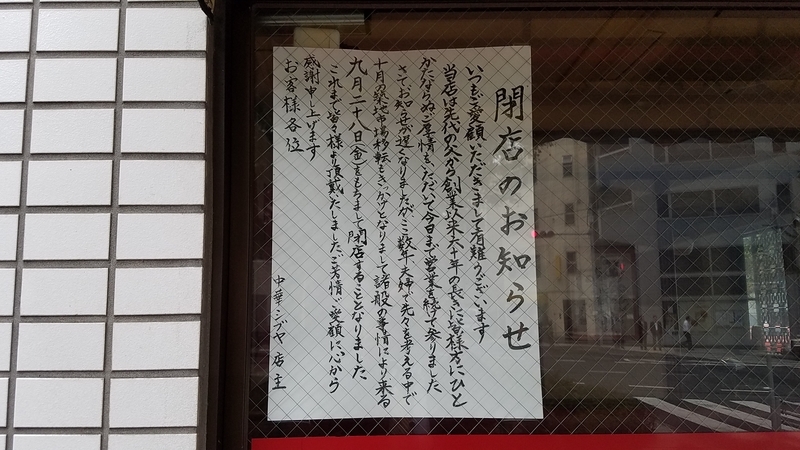 閉店のお知らせ
いつもご愛顧いただきまして有難うございます
当店は先代の父から創業以来六十年の長きに皆様方にひと
かたならぬご厚情をいただいて今日まで営業を続けて参りました
さて、お知らせが遅くなりましたがここ数年夫婦で先々を考える中で
十月の築地市場移転もきっかけとなりまして諸般の事情により来る
九月二十八日(金)をもちまして閉店することとなりました
これまで皆々様より頂戴いたしましたご芳情ご愛顧に心から
感謝申し上げます
お客様各位
中華シブヤ店主